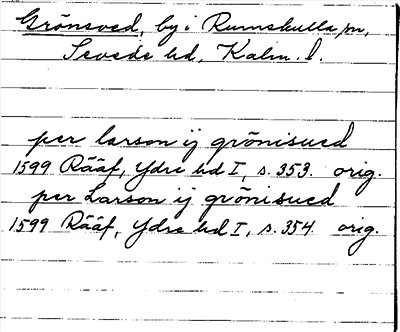 Grönsved, by i Rumskulla sn,
Sevede hd, Kalm. l.
per larson ij grönisued
1599 Rääf, Ydre hd I, s. 353. orig.
per Larson ij grönisued
1599 Rääf, Ydre hd I, s. 354. orig.